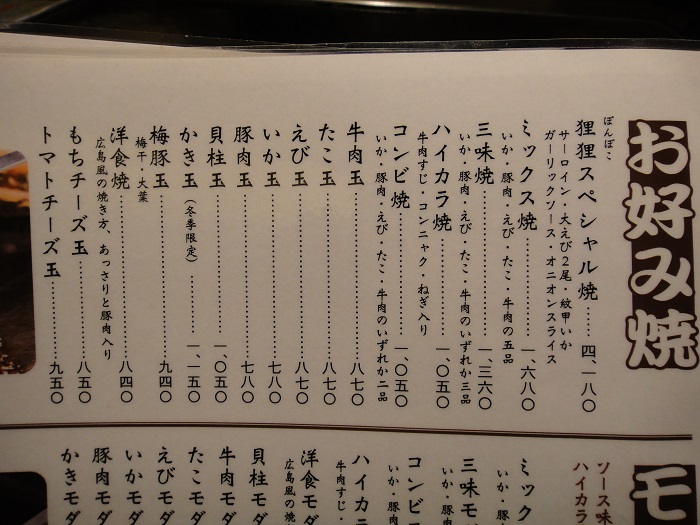 お好み焼
ぽんぽこ
狸狸スペシャル焼……四、一八〇
サーロイン・大えび2尾・紋甲いか
ガーリックソース・オニオンスライス
ミックス焼……一、六八〇
いか・豚肉・えび・たこ・牛肉の五品
三味焼……一、三六〇
いか・豚肉・えび・たこ・牛肉のいずれか三品
ハイカラ焼……一、〇五〇
牛肉すじ・コンニャク・ねぎ入り
コンビ焼……一、〇五〇
いか・豚肉・えび・たこ・牛肉のいずれか二品
牛肉玉……八七〇
たこ玉……八七〇
えび玉……八七〇
いか玉……七八〇
豚肉玉……七八〇
貝柱玉……一、〇五〇
かき玉(冬季限定)……一、一五〇
梅豚玉……九四〇
梅干・大葉
洋食焼……八四〇
広島風の焼き方、あっさりと豚肉入り
もちチーズ玉……八五〇
トマトチーズ玉……九五〇
モ
ソース味
ハイカラ
ミック
いか・豚
三味モ
いか・豚
コンビ
いか・豚
ハイカラ
牛肉すじ・
洋食モダ
広島風の焼
貝柱モダ
牛肉モダ
たこモダ
えびモダ
いかモダ
豚肉モダ
かきモダ